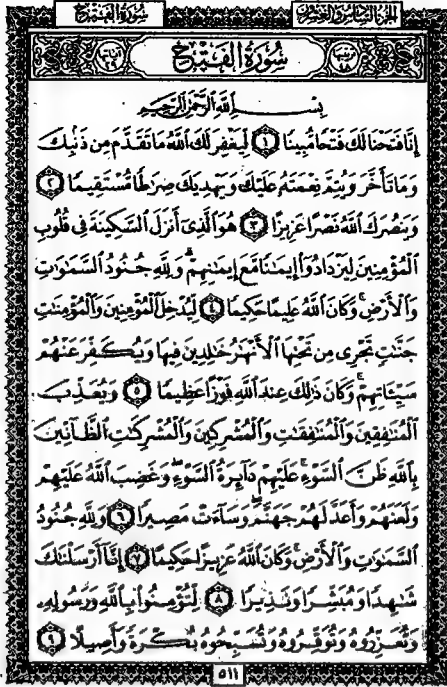 الجزء السادس والعشرون
سورة الفتح
ترتيبها ٤٨
سورة الفتح
آياتها ٢٩
بسم الله الرحمن الرحيم
إِنَّا فَتَحْنَا لَكَ فَتْحًا مُّبِينًا ١ لِّيَغْفِرَ لَكَ ٱللَّهُ مَا تَقَدَّمَ مِن ذَنۢبِكَ
وَمَا تَأَخَّرَ وَيُتِمَّ نِعْمَتَهُۥ عَلَيْكَ وَيَهْدِيَكَ صِرَٰطًا مُّسْتَقِيمًا ٢
وَيَنصُرَكَ ٱللَّهُ نَصْرًا عَزِيزًا ٣ هُوَ ٱلَّذِىٓ أَنزَلَ ٱلسَّكِينَةَ فِى قُلُوبِ
ٱلْمُؤْمِنِينَ لِيَزْدَادُوٓا۟ إِيمَٰنًا مَّعَ إِيمَٰنِهِمْ ۗ وَلِلَّهِ جُنُودُ ٱلسَّمَٰوَٰتِ
وَٱلْأَرْضِ ۚ وَكَانَ ٱللَّهُ عَلِيمًا حَكِيمًا ٤ لِّيُدْخِلَ ٱلْمُؤْمِنِينَ وَٱلْمُؤْمِنَٰتِ
جَنَّٰتٍ تَجْرِى مِن تَحْتِهَا ٱلْأَنْهَٰرُ خَٰلِدِينَ فِيهَا وَيُكَفِّرَ عَنْهُمْ
سَيِّـَٔاتِهِمْ ۚ وَكَانَ ذَٰلِكَ عِندَ ٱللَّهِ فَوْزًا عَظِيمًا ٥ وَيُعَذِّبَ
ٱلْمُنَٰفِقِينَ وَٱلْمُنَٰفِقَٰتِ وَٱلْمُشْرِكِينَ وَٱلْمُشْرِكَٰتِ ٱلظَّآنِّينَ
بِٱللَّهِ ظَنَّ ٱلسَّوْءِ ۚ عَلَيْهِمْ دَآئِرَةُ ٱلسَّوْءِ ۖ وَغَضِبَ ٱللَّهُ عَلَيْهِمْ
وَلَعَنَهُمْ وَأَعَدَّ لَهُمْ جَهَنَّمَ ۖ وَسَآءَتْ مَصِيرًا ٦ وَلِلَّهِ جُنُودُ
ٱلسَّمَٰوَٰتِ وَٱلْأَرْضِ ۚ وَكَانَ ٱللَّهُ عَزِيزًا حَكِيمًا ٧ إِنَّآ أَرْسَلْنَٰكَ
شَٰهِدًا وَمُبَشِّرًا وَنَذِيرًا ٨ لِّتُؤْمِنُوا۟ بِٱللَّهِ وَرَسُولِهِۦ
وَتُعَزِّرُوهُ وَتُوَقِّرُوهُ وَتُسَبِّحُوهُ بُكْرَةً وَأَصِيلًا ٩
٥١١